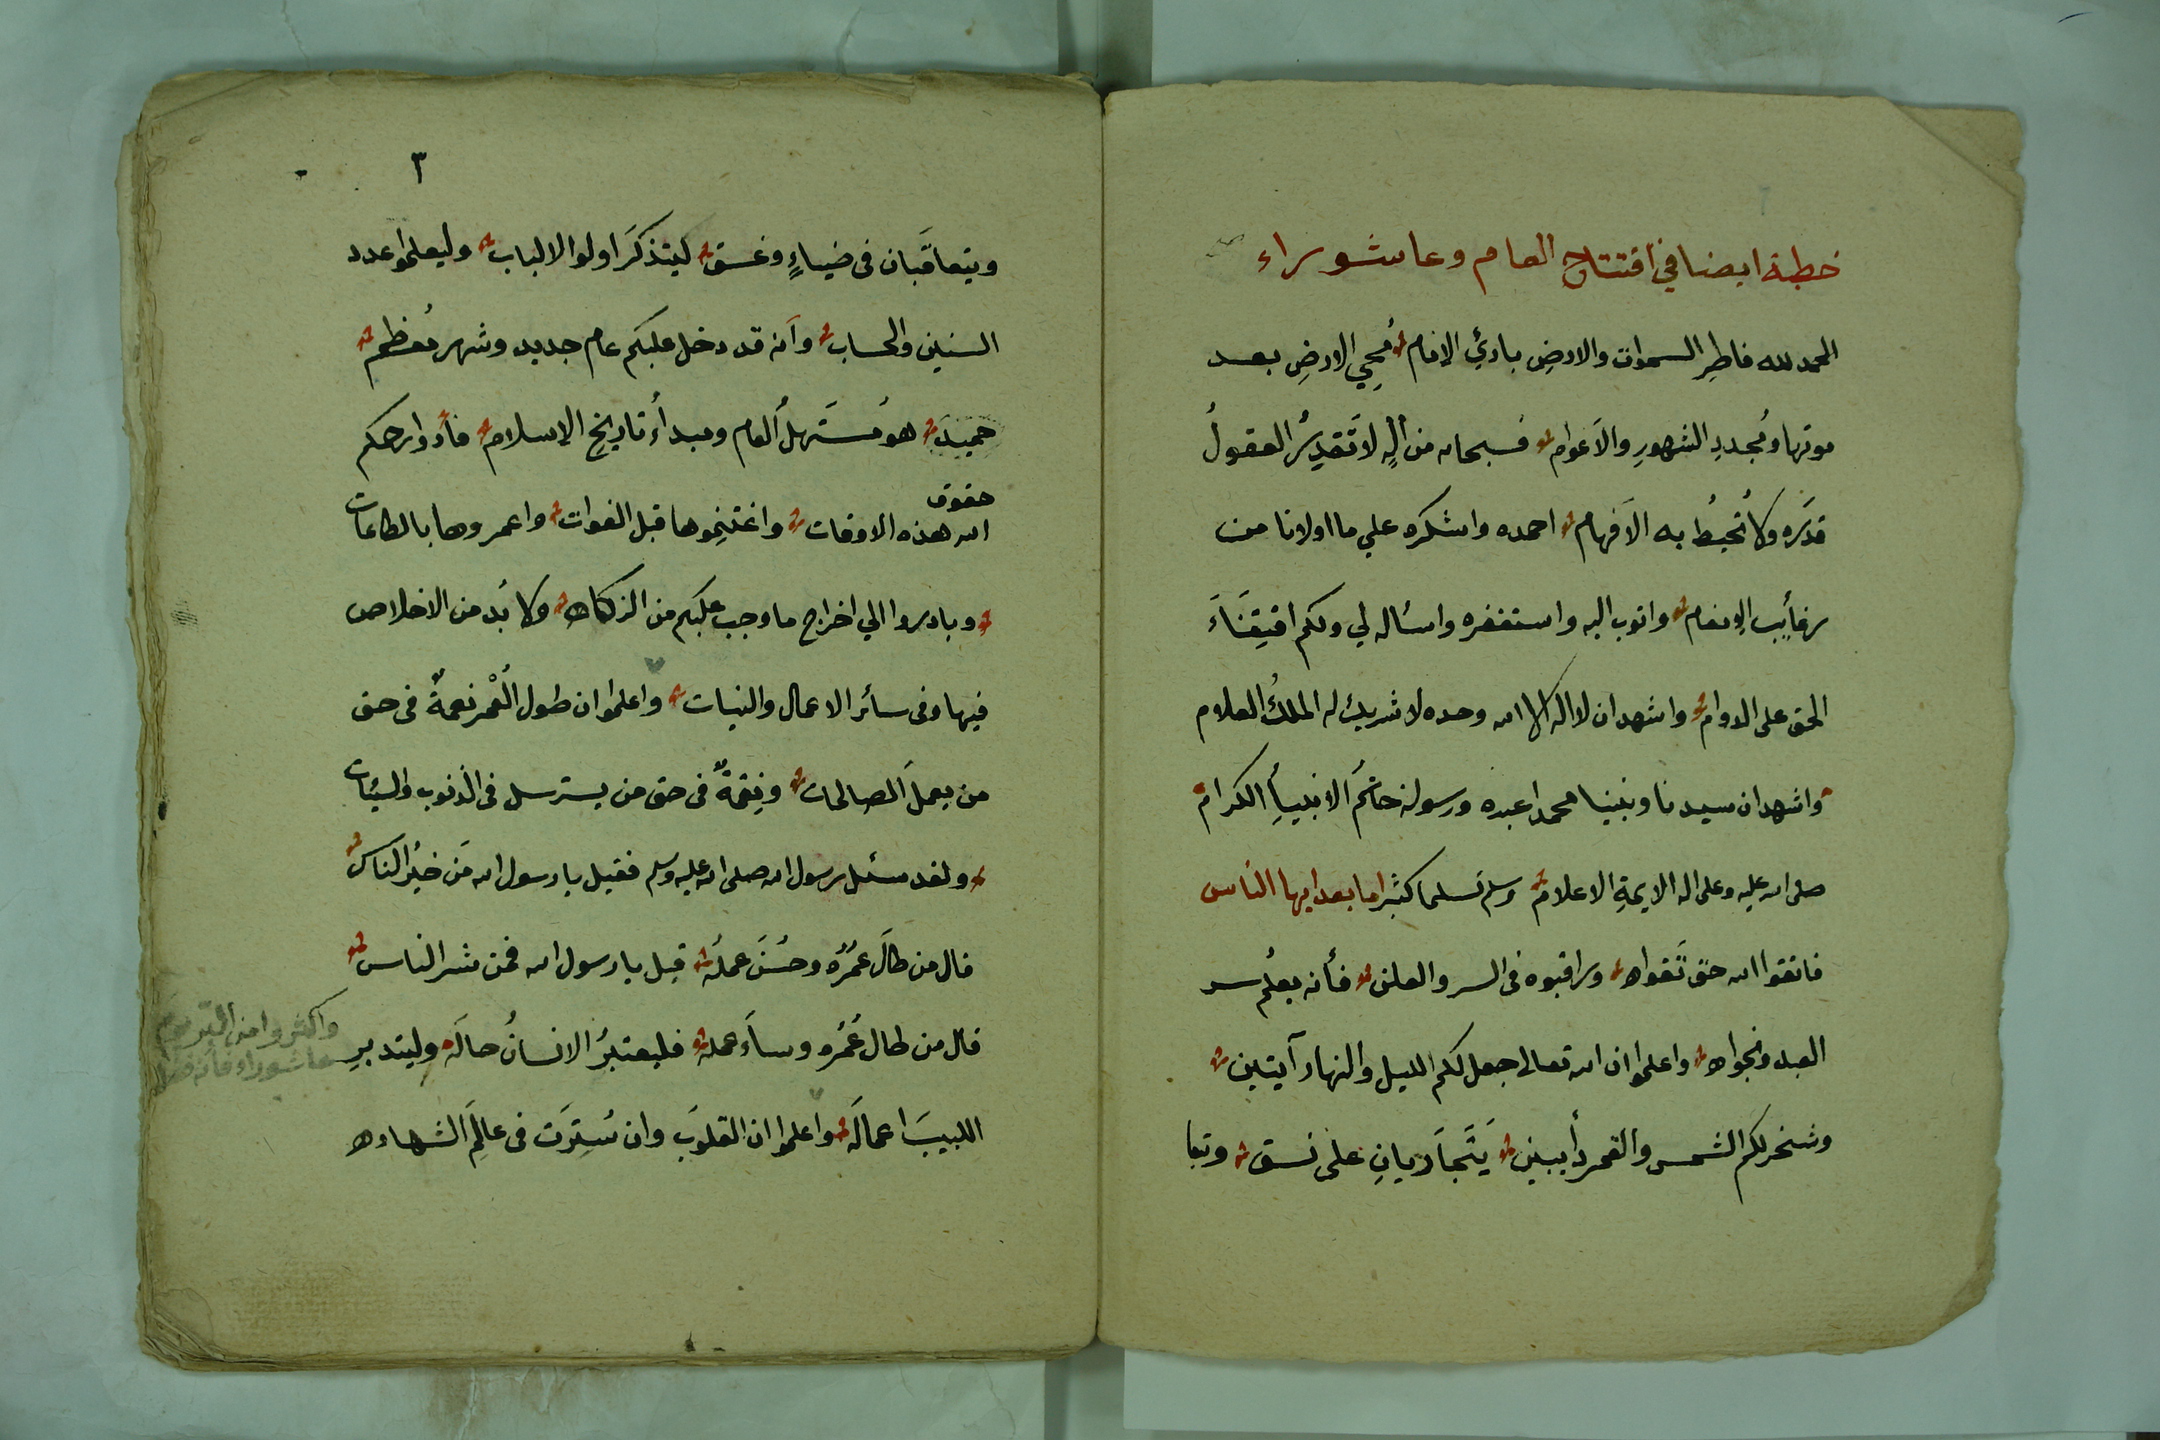 خطبة ايضا في افتتاح العام وعاشوراء
الحمد لله فاطِر السموات والارضِ بادئِ الانام مُحيِي الارضِ بعد
موتها ومُجددِ الشهورِ والاَعوام فسبحانه من الٰهٍ لا تَقدِرُ العقولُ
قدَره ولا تُحيطُ به الاَفهام احمده واشكره علي ما اولانا من
رغأيب الانعام واتوب اليه واستغفره واسأله لي ولكم
الحق على الدوام واشهد ان لا اله الا الله وحده لا شريك له الملكُ العلام
واشهد ان سيدنا ونبينا محمدا عبده ورسوله خاتَم الانبياءِ الكرام
صلى الله عليه وعلى اله الايمةِ الاعلام وسلم تسليما كثيرا اما بعد ايها الناس
فاتقوا الله حق تَقواه وراقبوه فى السر والعلن فأنه يعلُم سر
العبد ونجواه واعلموا ان الله تعالى جعل لكم الليل والنهار آيتين
وسَخر لكم الشمس والقمر دأيبين يَتَجاَريانِ على نسق وتعا
٣
ويتعاقَبَان فى ضياءٍ وغسق ليتذكرَ اولوا الالباب وليعلموا عدد
السنين والحساب وأنه قد دخل عليكم عام جديد وشهر مُعظم
حميد هو مُستَهلُ العام ومبدأُ تاريخِ الإسلام فأدوا رحمكم
حقوق
الله هذه الاوقات واغتنِموها قبل الفوات واعمروها بالطاعات
وبادروا الي اخراج ما وجب عليكم من الزكاه ولا بُد من الاخلاص
فيها وفى سائر الاعمال والنيات واعلموا ان طول الُعْمر نعمةٌ فى حق
من يعملَ الصالحات ونِقمةٌ فى حق من يسترسل فى الذنوب والسيئات
ولقد سئل رسول الله صلى الله عليه وسلم فقيل يا رسول الله مَن خيُر الناس
قال من طالَ عمُرُه وحسُنَ عملُه قيل يا رسول الله فمن شر الناس
قال من طال عُمُره وساَء عمله فليعتبرُ الانسانُ حالَه وليتدبرِ
واكثروا من البّر يوم
عاشوراء فأنه فضل
اللبيبَ اعمالَه واعلموا ان القلوبَ وان سُتِرَت فى عالِمَ الشهاده